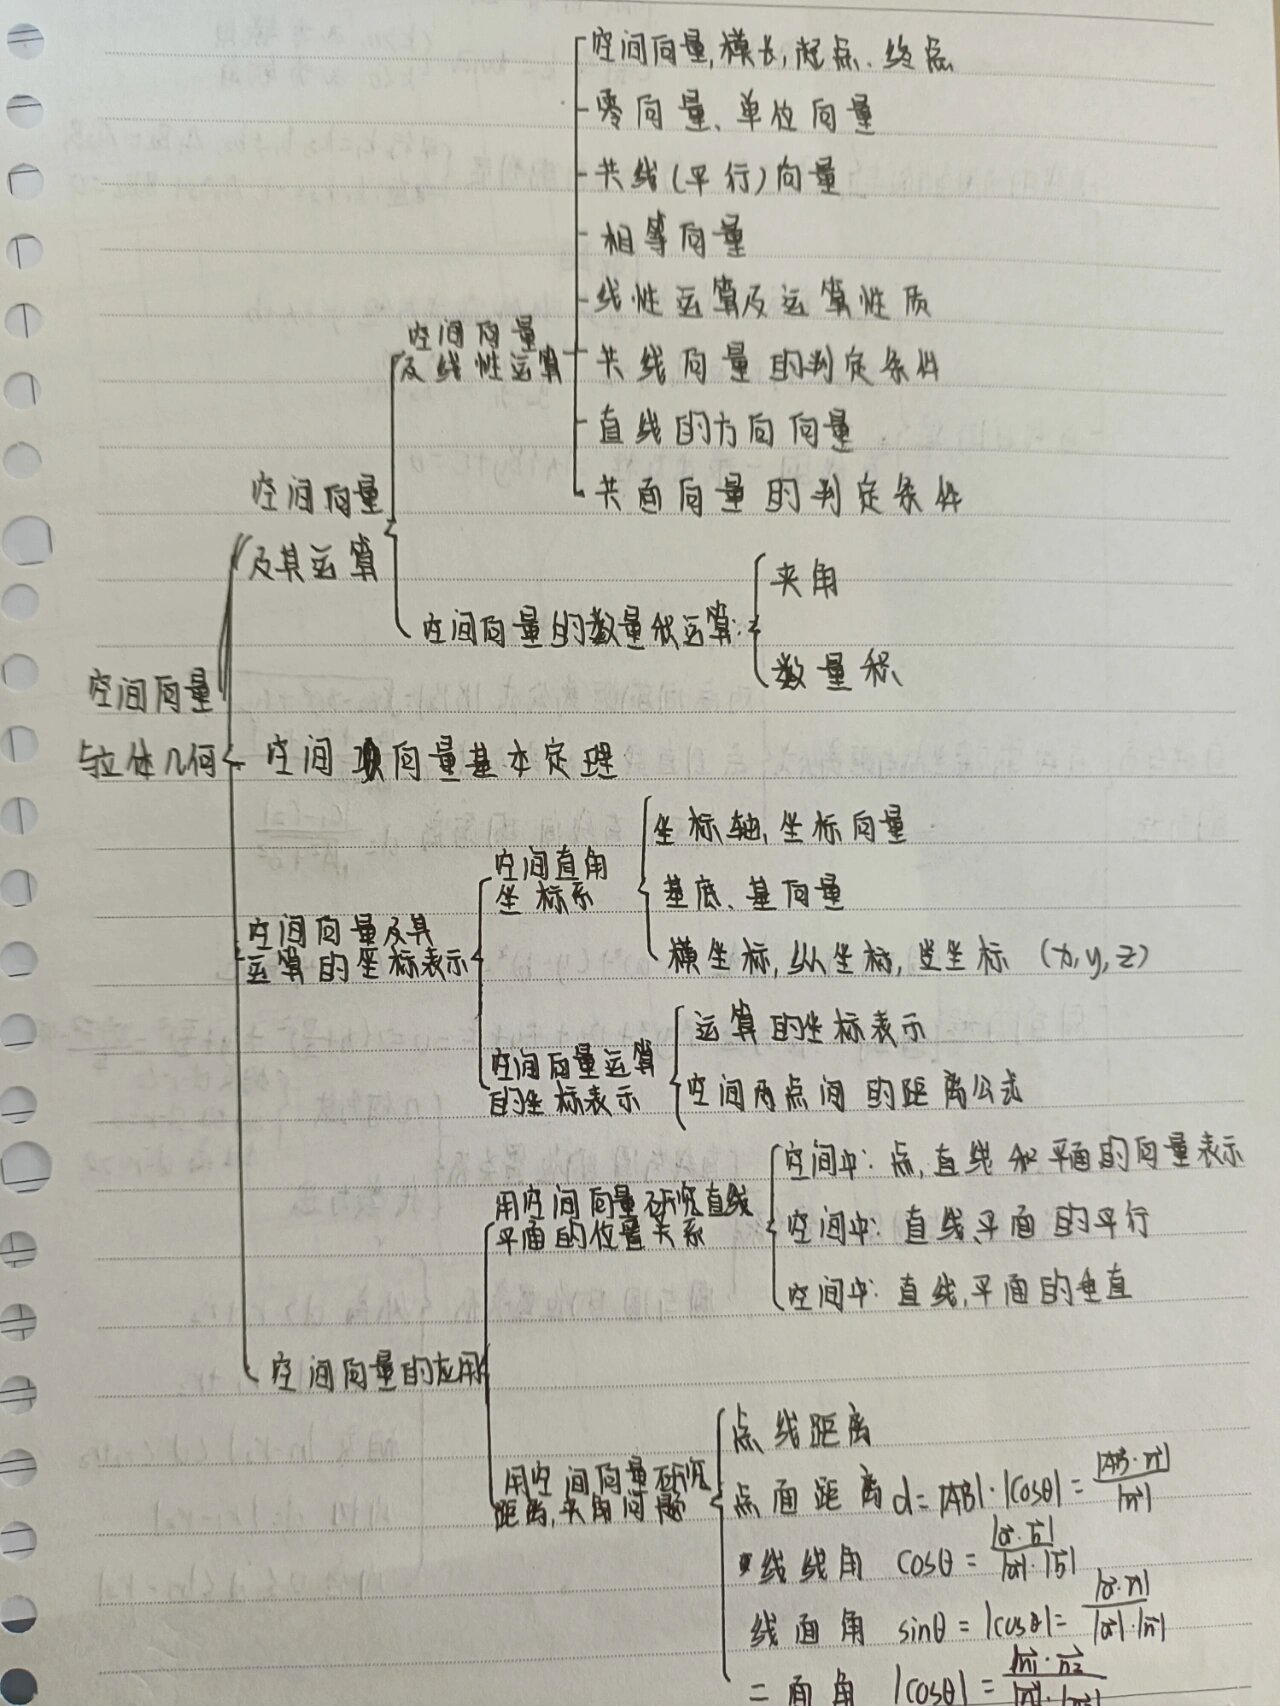 空间向量,模长,起点、终点
零向量、单位向量
共线(平行)向量
相等向量
线性运算及运算性质
空间向量
及线性运算
共线向量的判定条件
直线的方向向量
共面向量的判定条件
空间向量
及其运算
夹角
空间向量的数量积运算:
数量积
空间向量
与立体几何
空间向量基本定理
坐标轴,坐标向量
空间直角
坐标系
基底、基向量
横坐标,纵坐标,竖坐标 (x,y,z)
空间向量及其
运算的坐标表示
运算的坐标表示
空间向量运算
的坐标表示
空间两点间的距离公式
空间中:点,直线和平面的向量表示
用空间向量研究直线
平面的位置关系
空间中:直线、平面的平行
空间中:直线,平面的垂直
空间向量的应用
点线距离
用空间向量研究
距离,夹角问题
点面距离 d=|AB|·|cosθ|=|AB·n⃗|/|n⃗|
线线角 cosθ=|a⃗·b⃗|/|a⃗|·|b⃗|
线面角 sinθ=|cosθ|=|a⃗·n⃗|/|a⃗|·|n⃗|
二面角 |cosθ|=|n⃗1·n⃗2|